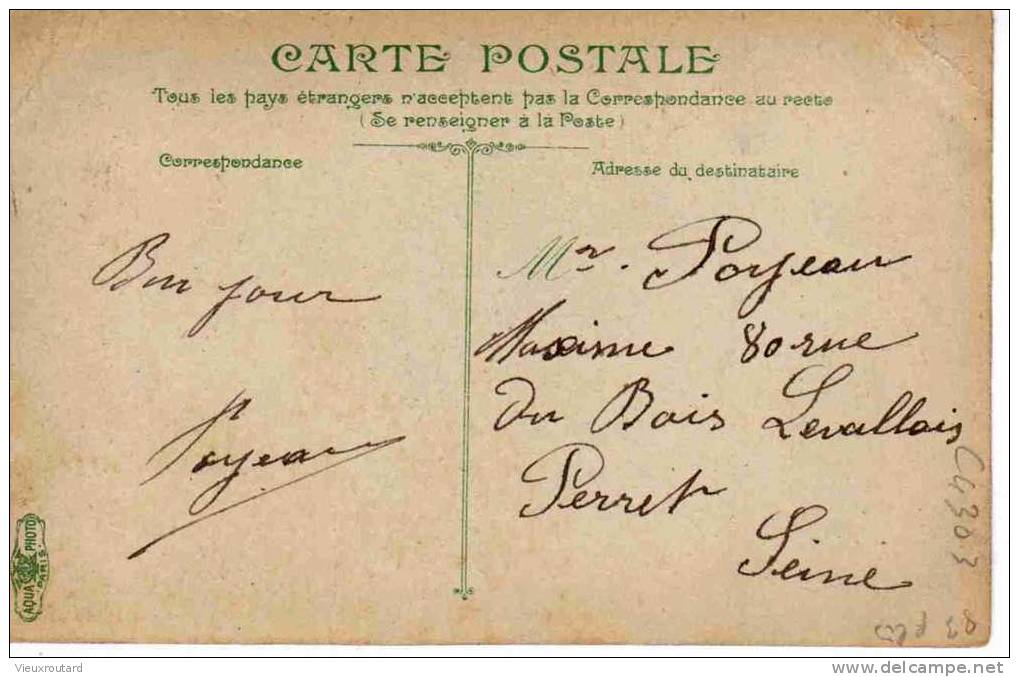 CARTE POSTALE
Tous les pays étrangers n'acceptent pas la Correspondance au recto
(Se renseigner à la Poste)
Correspondance
Adresse du destinataire
Bon jour
Poyeau
Mr. Poyeau
Maxime 80 rue
du Bois Levallois
Perret
Seine
C4303
AQUA PHOTO
PARIS
Vieuxroutard
delcampe.net